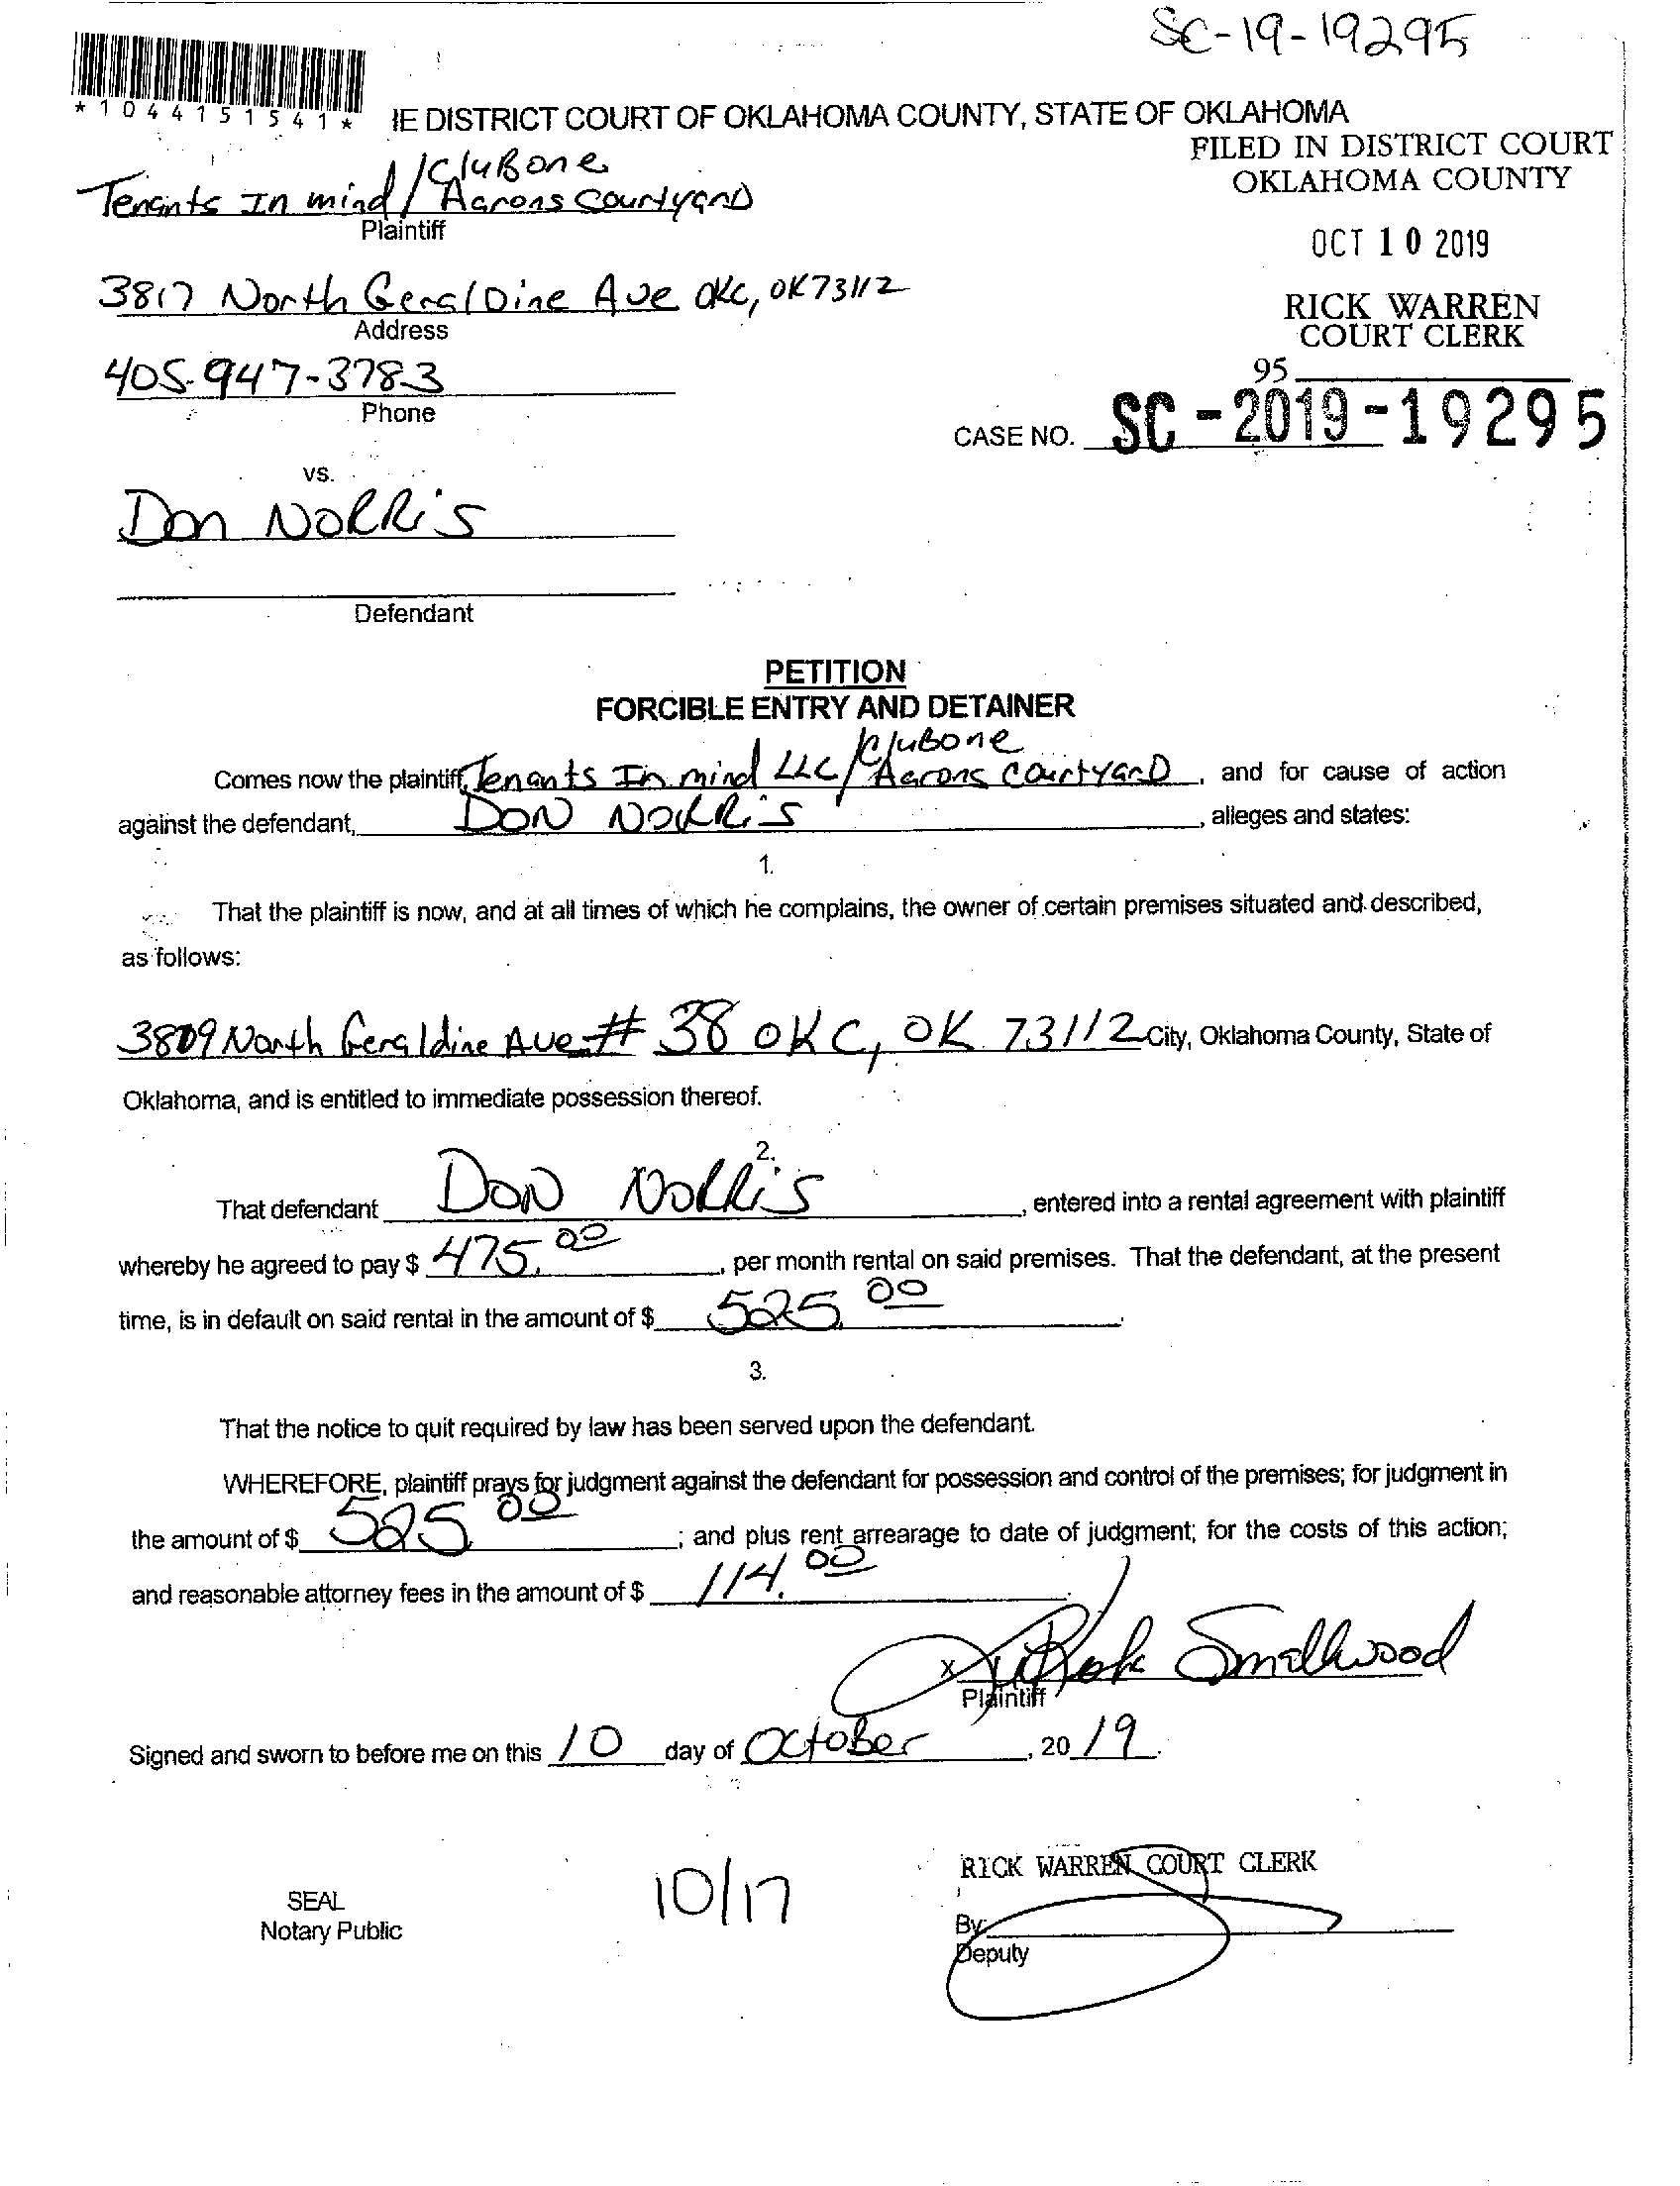 SC-19-19295
*1044151541*
IE DISTRICT COURT OF OKLAHOMA COUNTY, STATE OF OKLAHOMA
FILED IN DISTRICT COURT
OKLAHOMA COUNTY
OCT 10 2019
RICK WARREN
COURT CLERK
95
CASE NO. SC-2019-19295
/CluBone
Tenants In mind / Aarons CourtyarD
Plaintiff
3817 North GeralDine Ave OKC, OK 73112
Address
405-947-3783
Phone
vs.
Don NoRRiS
Defendant
PETITION
FORCIBLE ENTRY AND DETAINER
/Clubone
Comes now the plaintiff, Tenants In mind LLC / Aarons CourtyarD, and for cause of action
against the defendant, DON NORRiS, alleges and states:
1.
That the plaintiff is now, and at all times of which he complains, the owner of certain premises situated and described,
as follows:
3809 North Geraldine Ave # 38 OKC, OK 73112 City, Oklahoma County, State of
Oklahoma, and is entitled to immediate possession thereof.
2.
That defendant DoN NoRRiS, entered into a rental agreement with plaintiff
whereby he agreed to pay $ 475.00, per month rental on said premises. That the defendant, at the present
time, is in default on said rental in the amount of $ 525.00.
3.
That the notice to quit required by law has been served upon the defendant.
WHEREFORE, plaintiff prays for judgment against the defendant for possession and control of the premises; for judgment in
the amount of $ 525.00; and plus rent arrearage to date of judgment; for the costs of this action;
and reasonable attorney fees in the amount of $ 114.00.
x Smallwood
Plaintiff
Signed and sworn to before me on this 10 day of OctoBer, 2019.
SEAL
Notary Public
10/17
RICK WARREN COURT CLERK
By:
Deputy